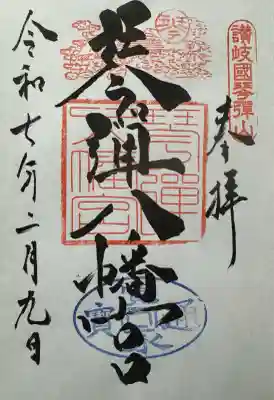 讃岐國琴弾山
奉拝
琴弾八幡宮
琴弾八幡宮
令和七年二月九日
寛永通寳